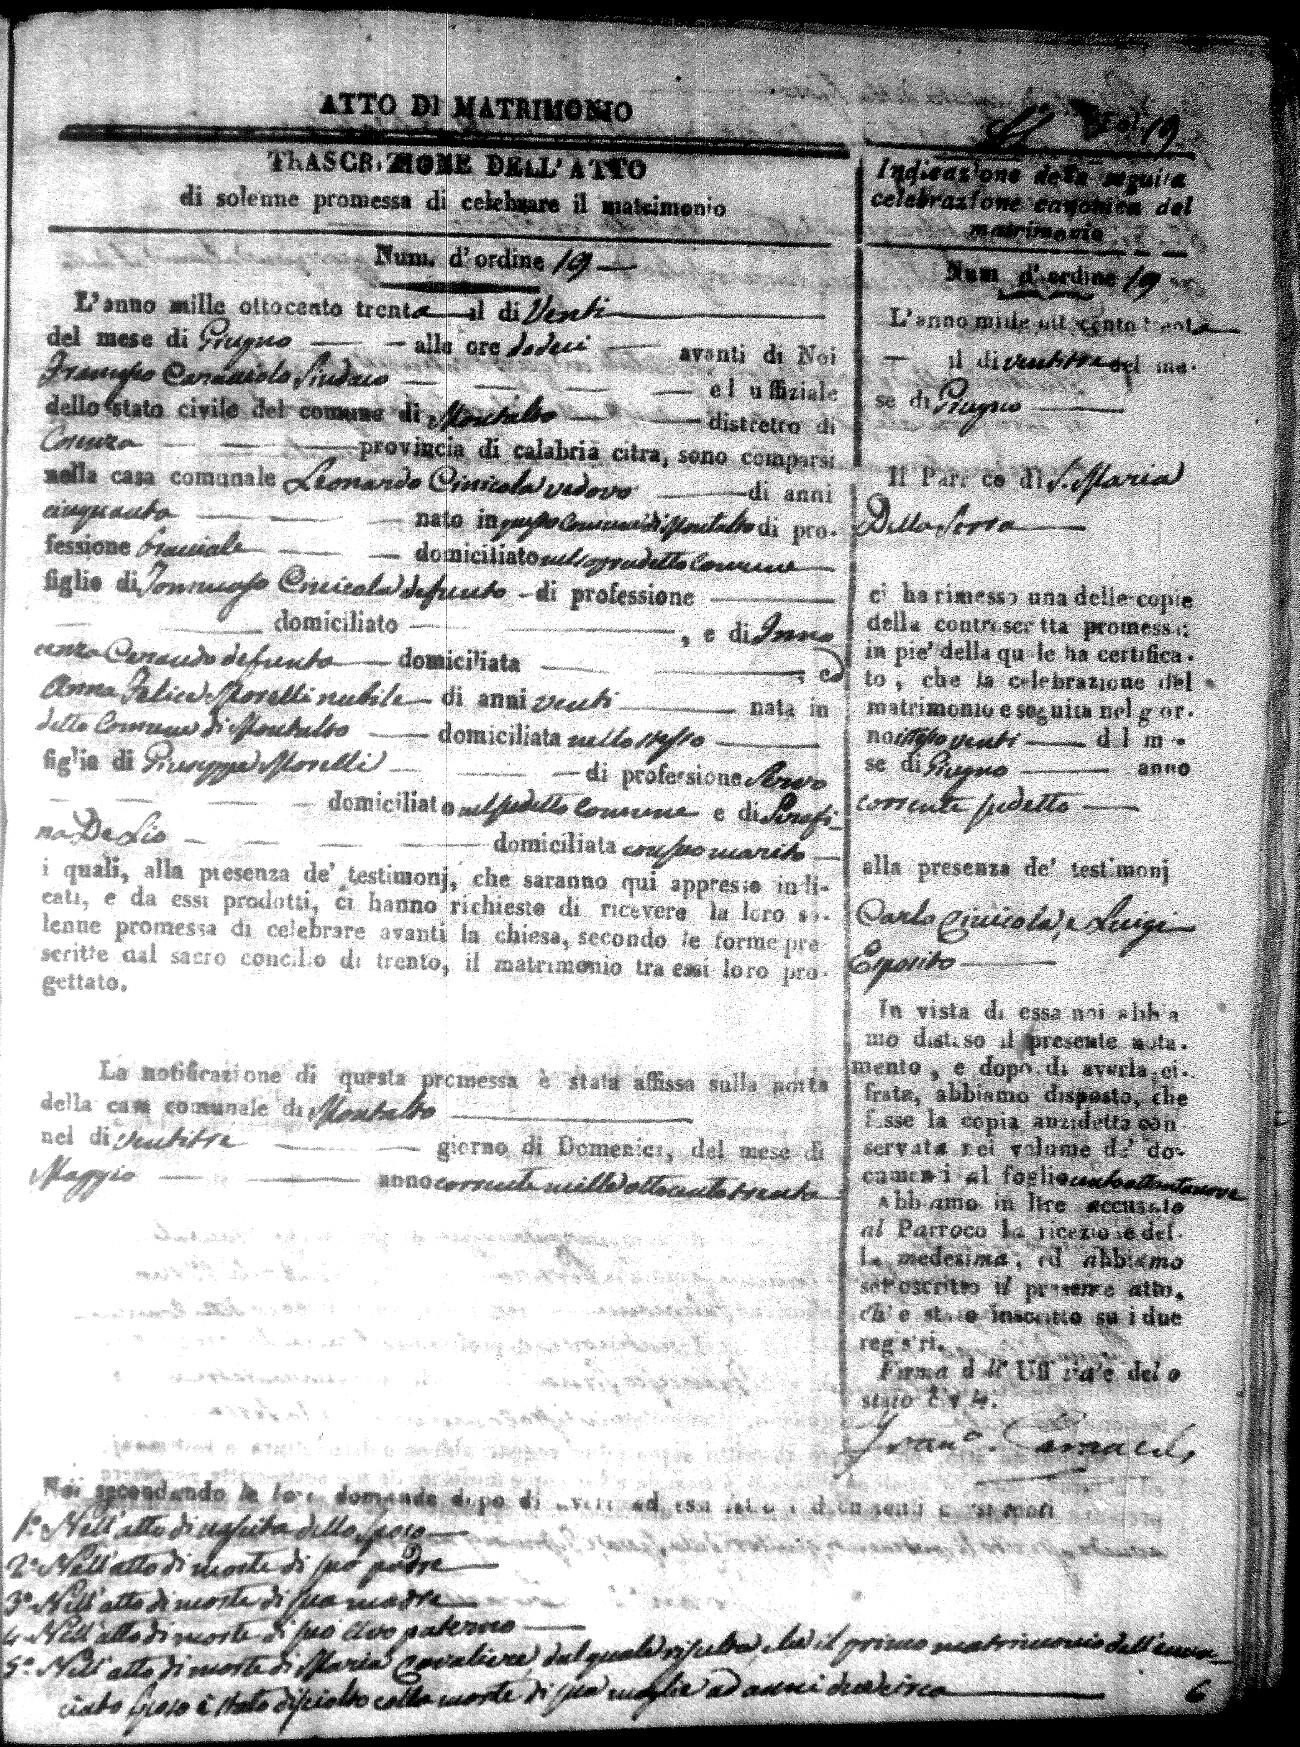 ATTO DI MATRIMONIO
Fol 19.
TRASCRIZIONE DELL'ATTO
di solenne promessa di celebrare il matrimonio
Num. d'ordine 19
L'anno mille ottocento trenta il di Venti
del mese di Giugno alle ore dodici avanti di Noi
Francesco Caracciolo Sindaco ed uffiziale
dello stato civile del comune di Montalto distretto di
Cosenza provincia di calabria citra, sono comparsi
nella casa comunale Leonardo Cinicola vedovo di anni
cinquanta nato in questo Comune di Montalto di pro-
fessione bracciale domiciliato nel sopradetto Comune
figlio di Tommaso Cinicola defunto di professione
domiciliato , e di Inno
cenza Canaudo defunta domiciliata , ed
Anna Felice Morelli nubile di anni venti nata in
detto Comune di Montalto domiciliata nello stesso
figlia di Giuseppe Morelli di professione Servo
domiciliato nel sudetto Comune e di Serafi-
na De Lio domiciliata con suo marito
i quali, alla presenza de' testimonj, che saranno qui appresso indi-
cati, e da essi prodotti, ci hanno richiesto di ricevere la loro so-
lenne promessa di celebrare avanti la chiesa, secondo le forme pre
scritte dal sacro concilio di trento, il matrimonio tra essi loro pro-
gettato.
La notificazione di questa promessa è stata affissa sulla porta
della casa comunale di Montalto
nel di ventitre giorno di Domenica, del mese di
Maggio anno corrente mille ottocento trenta
Noi secondando le loro domande dopo di aver ad essi letto i documenti consistenti
1º. Nell'atto di nascita dello sposo
2º Nell'atto di morte di suo padre
3º Nell'atto di morte di sua madre
4 Nell'atto di morte di suo Avo paterno
5º Nell'atto di morte di Maria Cavaliere dal quale risulta, che il primo matrimonio dell'enun-
ciato sposo è stato disciolto colla morte di sua moglie ad anni due circa
6
Indicazione della seguita
celebrazione canonica del
matrimonio
Num. d'ordine 19
L'anno mille ottocento trenta
il di ventitre del me-
se di Giugno
Il Parroco di S. Maria
Della Serra
ci ha rimesso una delle copie
della controscritta promessa:
in pie' della quale ha certifica-
to, che la celebrazione del
matrimonio e seguita nel gior-
no istesso venti del me
se di Giugno anno
corrente sudetto
alla presenza de' testimonj
Carlo Cinicola, e Luigi
Esposito
In vista di essa noi abbia
mo disteso il presente nota-
mento, e dopo di averla ci-
frata, abbiamo disposto, che
fosse la copia anzidetta con
servata nel volume de' do-
cumenti al foglio centottantanove
Abbiamo in ltre accusato
al Parroco la ricezione del-
la medesima, ed abbiamo
sottoscritto il presente atto,
ch'e stato inscritto su i due
registri.
Firma dell' Uffiziale dello
stato Civile.
Franc. Caracciolo